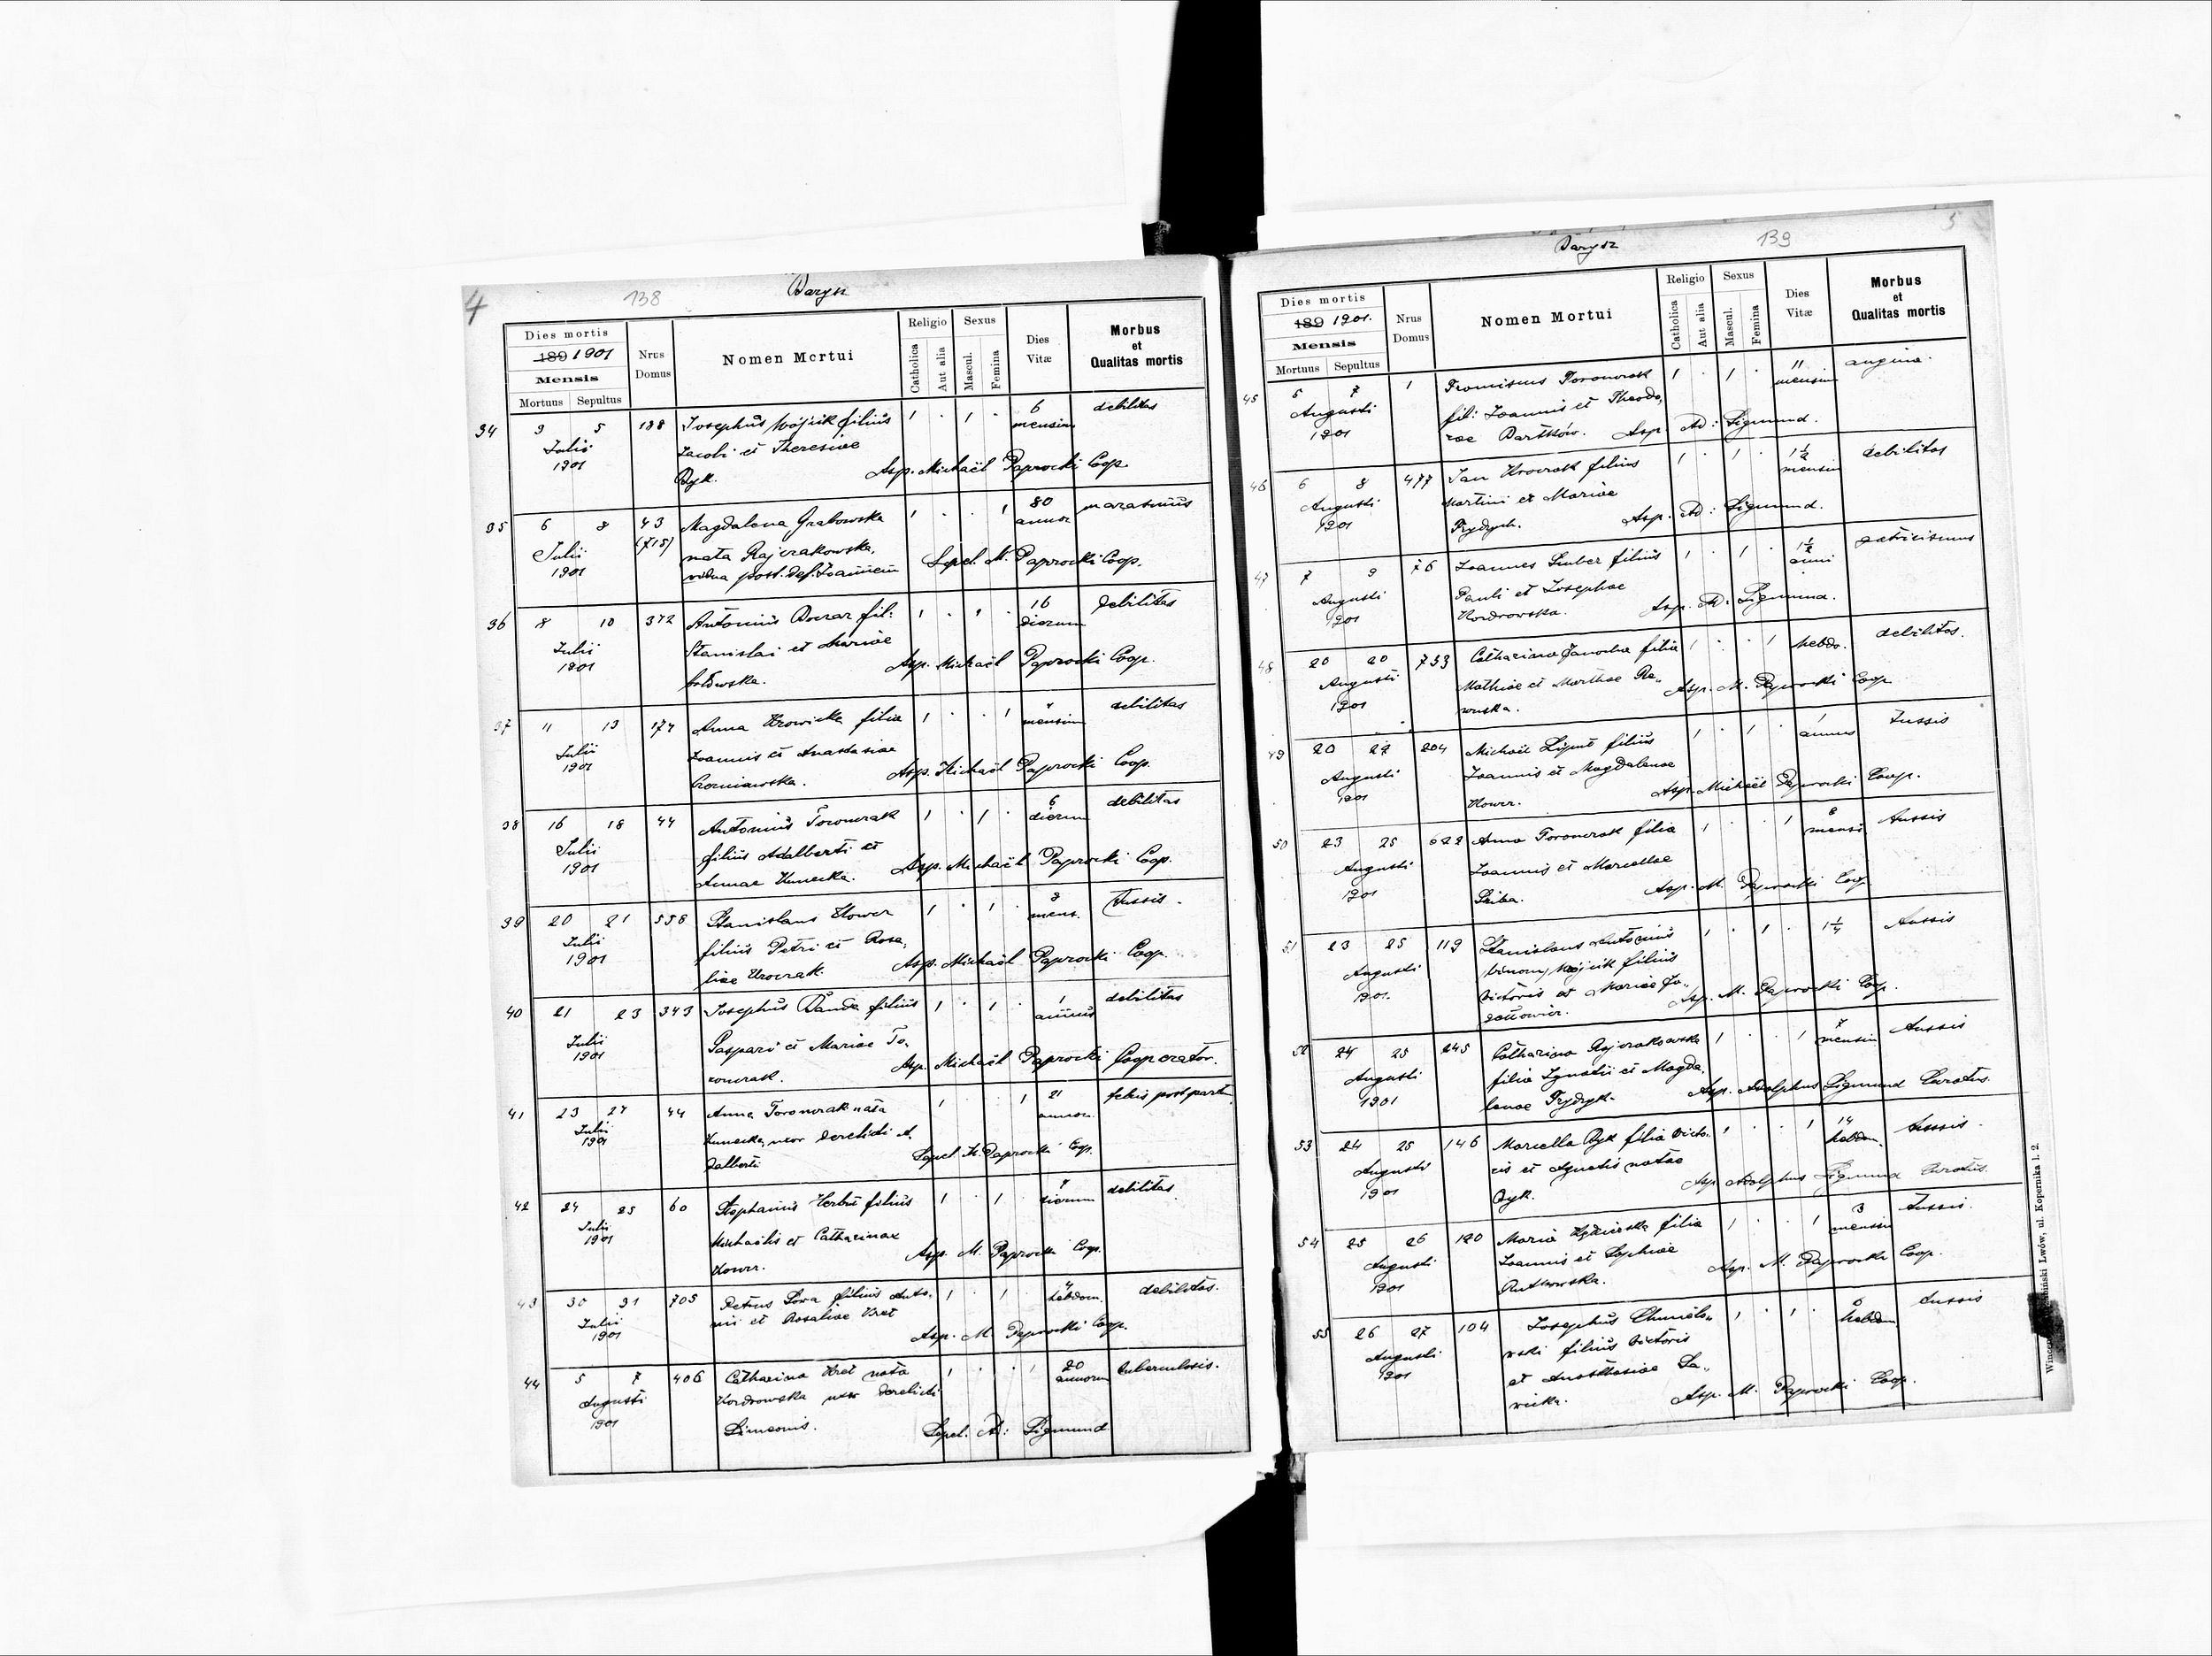 4
138
Barysz
Dies mortis
189 1901
Mensis
Mortuus Sepultus
Nrus Domus
Nomen Mortui
Religio
Catholica
Aut alia
Sexus
Mascul.
Femina
Dies Vitæ
Morbus et Qualitas mortis
34 3 5 188 Josephus Wójcik filius 1 . 1 . 6 debilitas
Julii Jacobi et Theresiae mensium
1901 Byk. Asp. Michaël Paprocki Coop.
35 6 8 43 Magdalena Grabowska 1 . . 1 80 marasmus
Julii (715) nata Rajczakowska, annor
1901 vidua post. def. Joannem Sepel. M. Paprocki Coop.
36 8 10 372 Antonius fil: 1 . 1 . 16 debilitas
Julii Stanislai et Mariae dierum
1901 Asp. Michaël Paprocki Coop.
37 11 13 174 Anna Krowicka filia 1 . . 1 mensium debilitas
Julii Joannis et Anastasiae
1901 Czerniawska. Asp. Michaël Paprocki Coop.
38 16 18 44 Antonius Toronczak 1 . 1 . 6 debilitas
Julii filius Adalberti et dierum
1901 Annae Kunecka. Asp. Michaël Paprocki Coop.
39 20 21 558 Stanislaus Kowcz 1 . 1 . 3 Tussis.
Julii filius Petri et Rosa- mens.
1901 liae Asp. Michaël Paprocki Coop.
40 21 23 343 Josephus Banda filius 1 . 1 . 1 debilitas
Julii Gaspari et Mariae To- annus
1901 ronczak. Asp. Michaël Paprocki Cooperator.
41 23 24 44 Anna Toronczak nata 1 . . 1 21 febris post part
Julii Kunecka, uxor derelicti A- annor.
1901 dalberti Sepel. M. Paprocki Coop.
42 24 25 60 Stephanus filius 1 . 1 . dierum debilitas
Julii Michaëlis et Catharinae
1901 Kowcz. Asp. M. Paprocki Coop.
43 30 31 705 Petrus Sowa filius Anto- 1 . 1 . 4 debilitas.
Julii nii et Rosaliae Kret hebdom.
1901 Asp. M. Paprocki Coop.
44 5 7 406 Catharina Kret nata 1 . . 1 20 tuberculosis.
Augusti Kordrowska uxor derelicti annorum
1901 Simeonis. Sepel. Ad: Sigmund
5
139
Barysz
Dies mortis
189 1901.
Mensis
Mortuus Sepultus
Nrus Domus
Nomen Mortui
Religio
Catholica
Aut alia
Sexus
Mascul.
Femina
Dies Vitæ
Morbus et Qualitas mortis
45 5 7 1 Franciscus Toronczak 1 . 1 . 11 angina.
Augusti fil: Joannis et Theodo- mensium
1901 rae Bartków. Asp. Ad: Sigmund.
46 6 8 477 Jan filius 1 . 1 . 1 1/2 debilitas
Augusti Martini et Mariae mensium
1901 Frydryk. Asp. Ad: Sigmund.
47 7 9 76 Joannes filius 1 . 1 . 1 1/2
Augusti Pauli et Josephae anni
1901 Kordrowska. Asp. Ad: Sigmund.
48 20 20 733 Catharina Janocha filia 1 . . 1 hebdo. debilitas.
Augusti Mathiae et Marthae
1901 Asp. M. Paprocki Coop
49 20 22 204 Michaël filius 1 . 1 . 1 Tussis
Augusti Joannis et Magdalenae annus
1901 Kowcz. Asp. Michaël Paprocki Coop.
50 23 25 622 Anna Toronczak filia 1 . . 1 mensi Tussis
Augusti Joannis et Marcellae
1901 Skiba. Asp. M. Paprocki Coop
51 23 25 119 Stanislaus Antonius 1 . 1 . 1 1/4 Tussis
Augusti binom. Wójcik filius
1901. Victoris et Mariae Asp. M. Paprocki Coop.
52 24 25 245 Catharina Rajczakowska 1 . . 1 7 Tussis
Augusti filia Ignatii et Magda- mensium
1901 lenae Frydryk. Asp. Adolphus Sigmund Curatus.
53 24 25 146 Marcella Byk filia Victo- 1 . . 1 14 tussis.
Augusti ris et Agnetis natae hebdom.
1901 Byk. Asp. Adolphus Sigmund Curatus.
54 25 26 120 Maria filia 1 . . 1 3 Tussis.
Augusti Joannis et Sophiae mensium
1901 Rutkowska. Asp. M. Paprocki Coop.
55 26 27 104 Josephus Chmielo- 1 . 1 . 6 tussis
Augusti wski filius Victoris hebdom
1901 et Anastasiae Sa-
wicka. Asp. M. Paprocki Coop.
Lwów, ul. Kopernika l. 2.